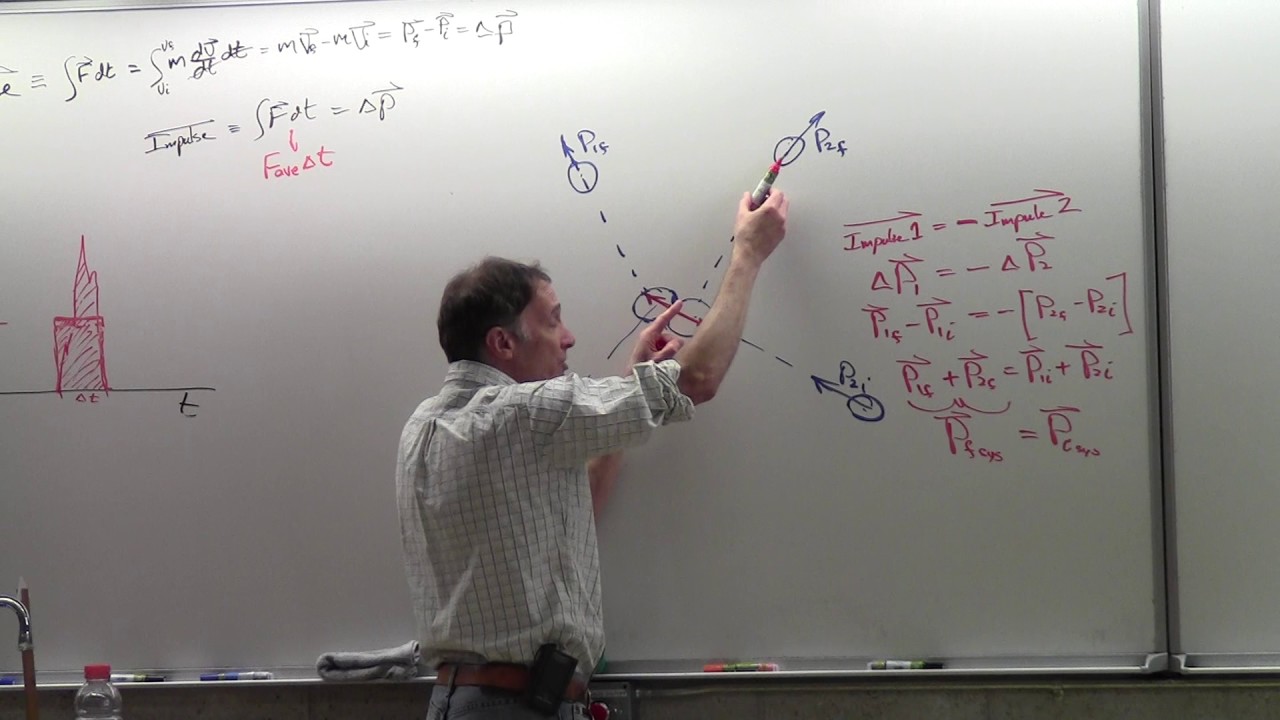 e ≡ ∫F⃗dt = ∫_{v_i}^{v_f} m dv⃗/dt dt = mv⃗_f - mv⃗_i = P⃗_f - P⃗_i = ΔP⃗
Impulse ≡ ∫F⃗dt = ΔP⃗
↓
F_ave Δt
P_{1f}
P_{2f}
1
P_{2i}
Δt
t
Impulse 1 = - Impulse 2
ΔP⃗_1 = - ΔP⃗_2
P⃗_{1f} - P⃗_{1i} = -[P_{2f} - P_{2i}]
P⃗_{1f} + P⃗_{2f} = P⃗_{1i} + P⃗_{2i}
P⃗_{f sys} = P⃗_{i sys}